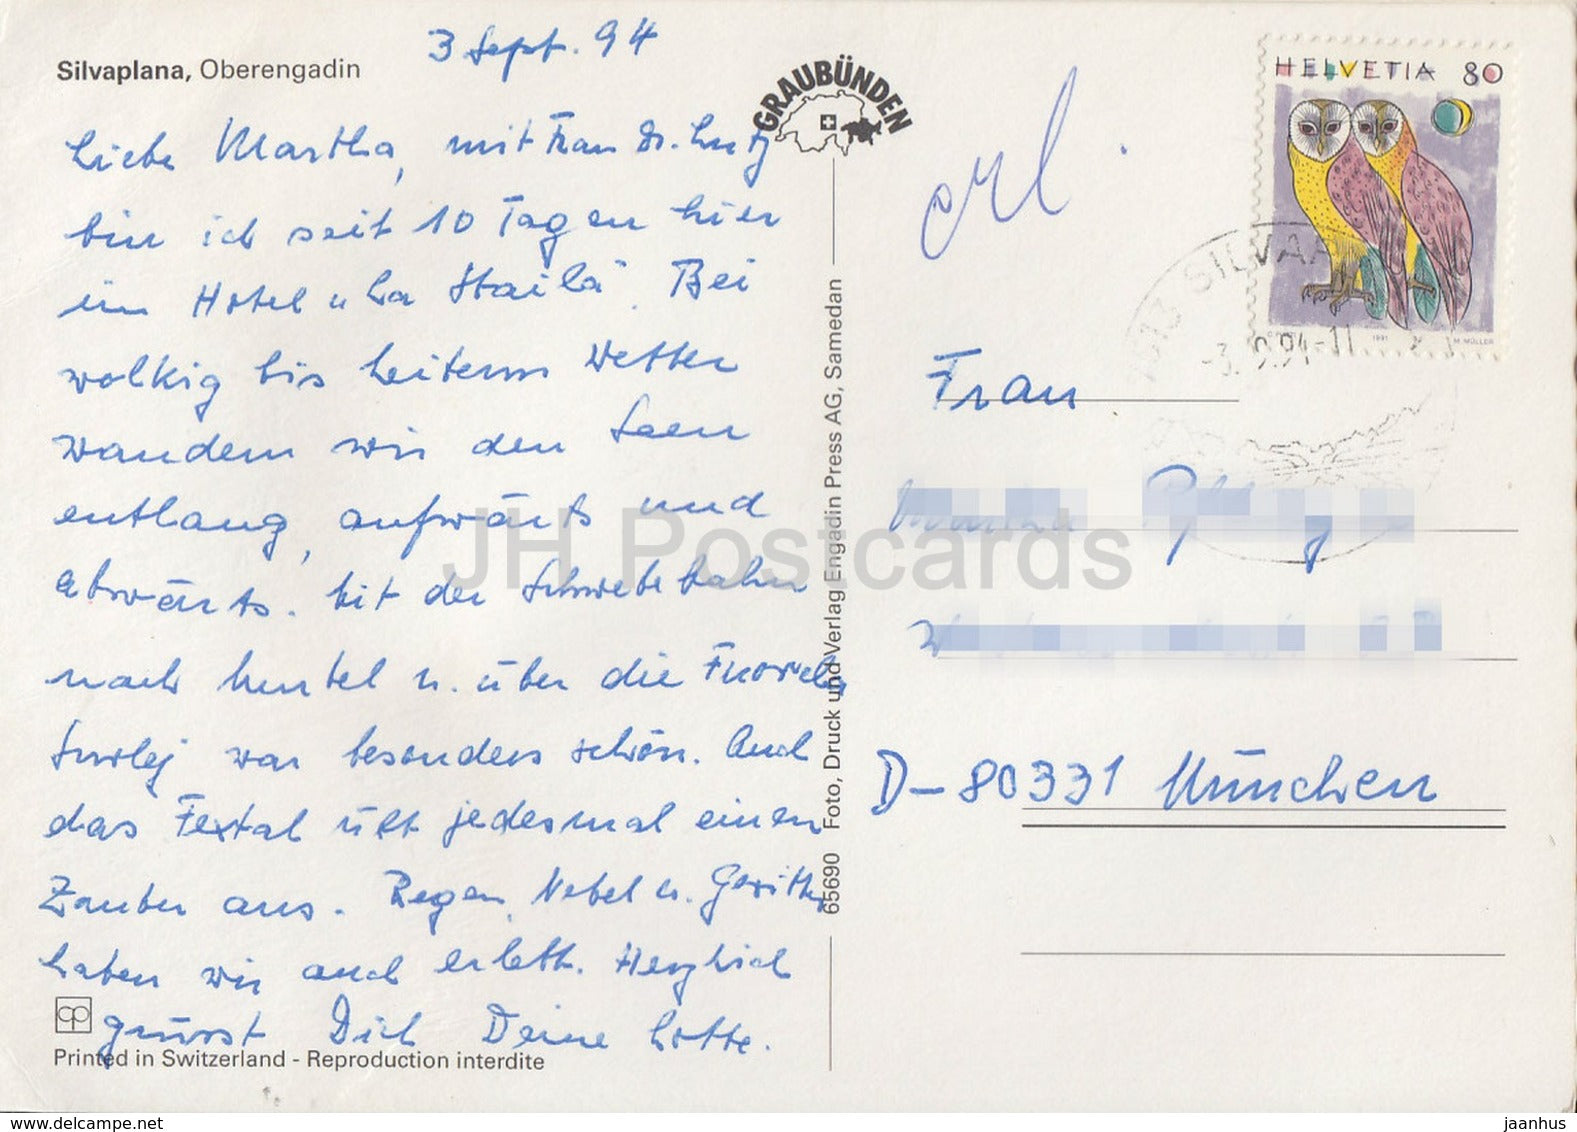 3 Sept. 94
Silvaplana, Oberengadin
Liebe Martha, mit Frau Dr. Lutz
bin ich seit 10 Tagen hier
im Hotel „La Staila“. Bei
wolkig bis heiterm Wetter
wandern wir den Seen
entlang, aufwärts und
abwärts. Mit der Schwebebahn
nach Murtel u. über die Fuorcla
Surlej war besonders schön. Auch
das Fextal übt jedesmal einen
Zauber aus. Regen, Nebel u. Gewitter
haben wir auch erlebt. Herzlich
grüsst Dich Deine Lotte.
cp
Printed in Switzerland - Reproduction interdite
GRAUBÜNDEN
65690 Foto, Druck und Verlag Engadin Press AG, Samedan
erl.
HELVETIA 80
1991 M. MÜLLER
SILVAP
-3.9.94-11
Frau
D-80331 München
JH Postcards
www.delcampe.net
jaanhus